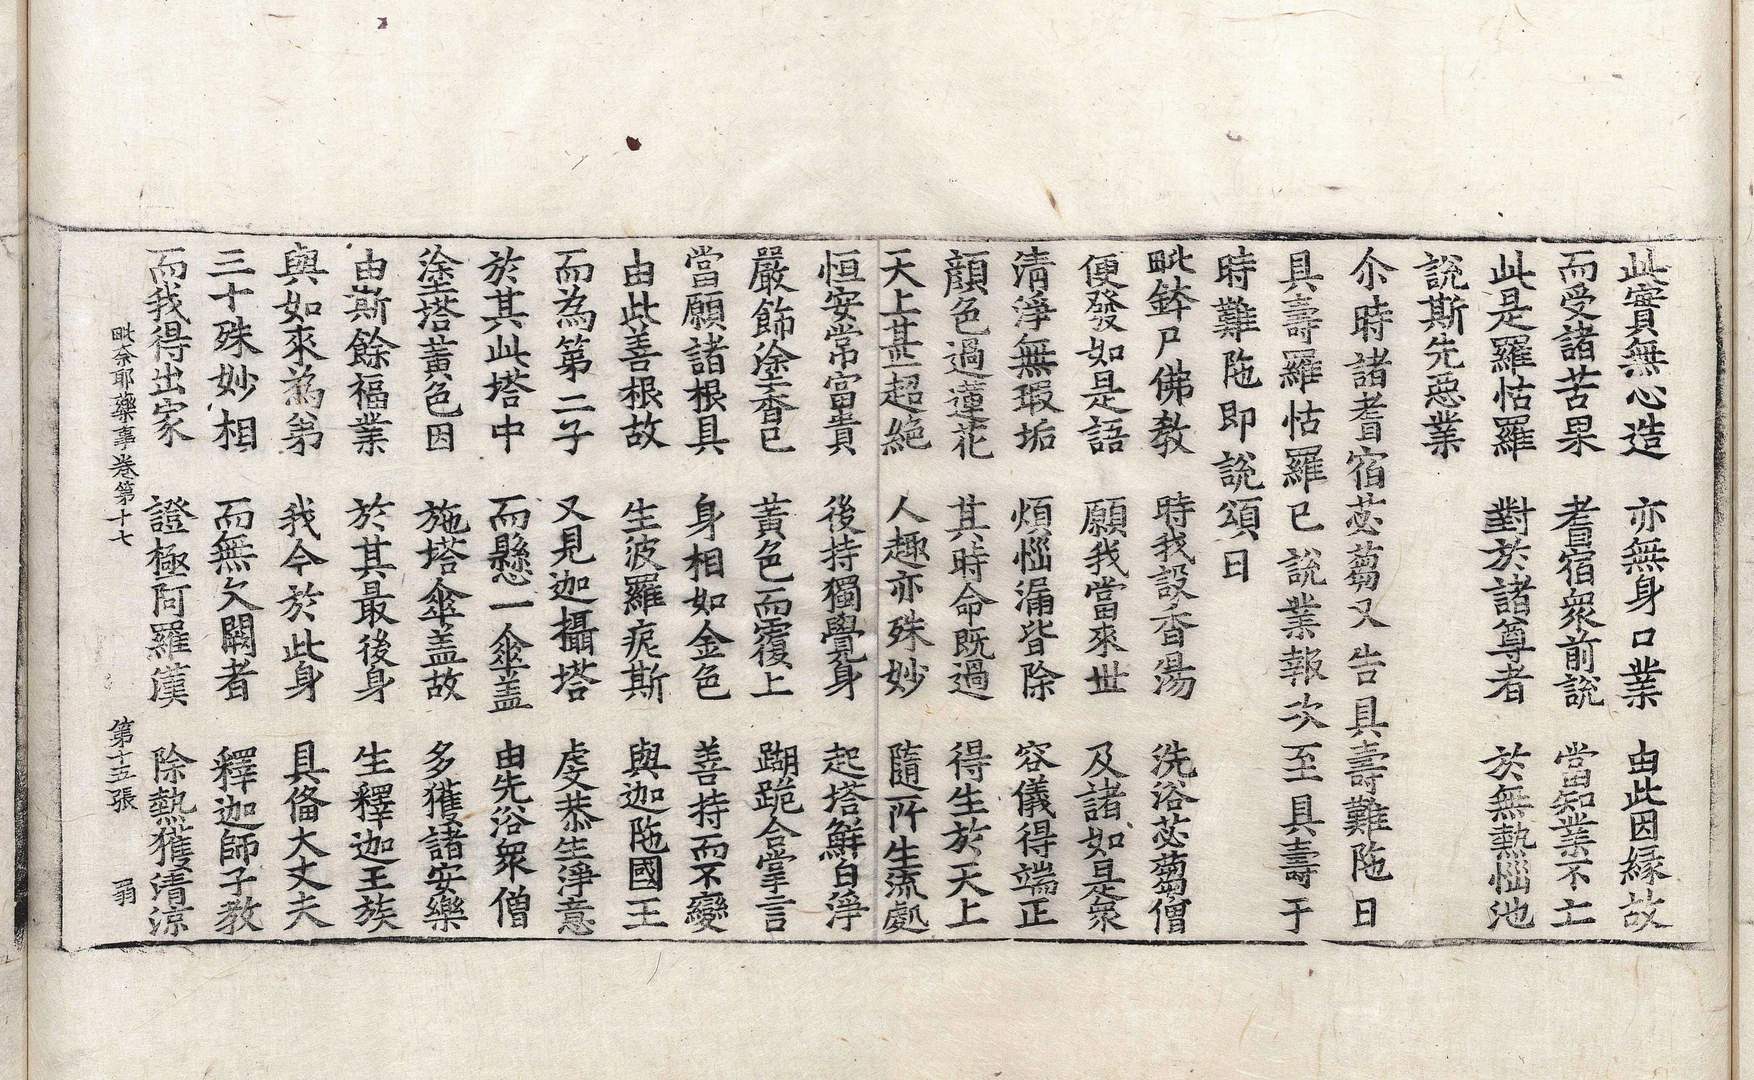 此實無心造　亦無身口業　由此因緣故
而受諸苦果　耆宿衆前說　當知業不亡
此是羅怙羅　對於諸尊者　於無熱惱池
說斯先惡業
尒時諸耆宿苾蒭又告具壽難陁曰
具壽羅怙羅已說業報次至具壽于
時難陁即說頌曰
毗鉢尸佛教　時我設香湯　洗浴苾蒭僧
便發如是語　願我當來世　及諸如是衆
清淨無瑕垢　煩惱漏皆除　容儀得端正
顏色過蓮花　其時命既過　得生於天上
天上甚超絶　人趣亦殊妙　隨所生流處
恒安常富貴　後持獨覺身　起塔鮮白淨
嚴飾塗香已　黃色而覆上　跏跪合掌言
當願諸根具　身相如金色　善持而不變
由此善根故　生波羅痆斯　與迦陁國王
而為第二子　又見迦攝塔　虔恭生淨意
於其此塔中　而懸一傘盖　由先浴衆僧
塗塔黃色因　施塔傘盖故　多獲諸安樂
由斯餘福業　於其最後身　生釋迦王族
與如來為弟　我今於此身　具俻大丈夫
三十殊妙相　而無欠闕者　釋迦師子教
而我得出家　證極阿羅漢　除熱獲清涼
毗奈耶藥事卷第十七　第十五張